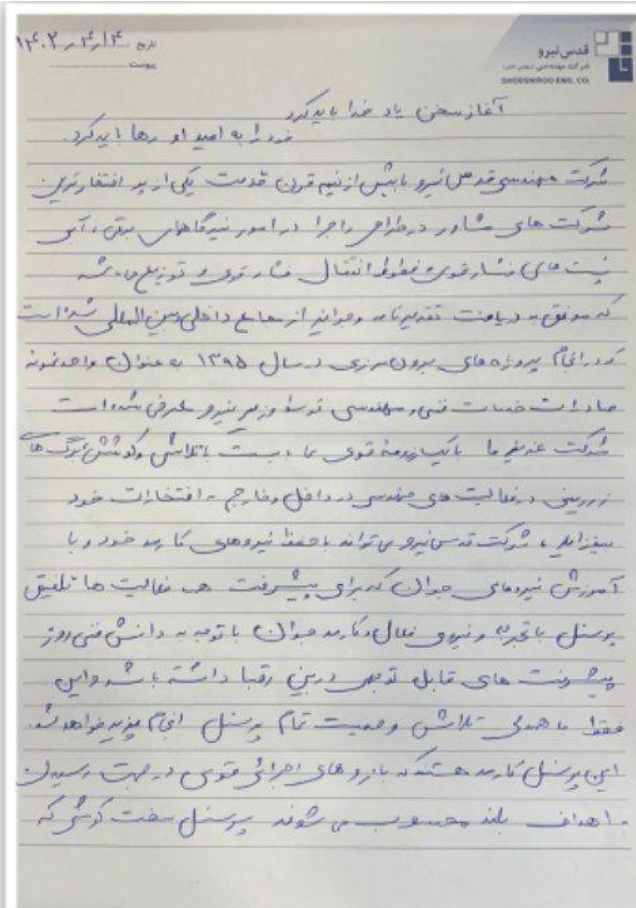 قدس نیرو
شرکت مهندسی
GHODSNIROO ENG. CO.
تاریخ ۱۴۰۳/۴/۴
پیوست
آغاز سخن یاد خدا باید کرد
خود را به امید او رها باید کرد.
شرکت مهندسی قدس نیرو با بیش از نیم قرن قدمت یکی از پر افتخارترین
شرکت های مشاور در طراحی و اجرا در امور نیروگاهی برقی، آبی
پست های فشار قوی و خطوط انتقال فشار قوی و توزیع می باشد
که موفق به دریافت تقدیرنامه و جوایز از مجامع داخلی و بین المللی شده است
که در انجام پروژه های برون مرزی در سال ۱۳۹۵ به عنوان واحد نمونه
صادرات خدمات فنی و مهندسی توسط وزیر نیرو معرفی شده است
شرکت عزیز ما با یک رزومه قوی می بایست با تلاش و کوشش
در فعالیت های مهندسی در داخل و خارج به افتخارات خود
بیفزاید، شرکت قدس نیرو می تواند با حفظ نیروهای کارآمد خود و با
آموزش نیروهای جوان که برای پیشرفت فعالیت ها تلفیق
پرسنل با تجربه و نیروی فعال و کارآمد جوان با توجه به دانش فنی روز
پیشرفت های قابل توجهی در بین رقبا داشته باشد و این
فقط با همدلی تلاش و جدیت تمام پرسنل انجام پذیر خواهد شد.
این پرسنل کارآمد هستند که بازوهای اجرائی قوی در جهت رسیدن
به اهداف بلند محسوب می شوند پرسنل سخت کوشی که